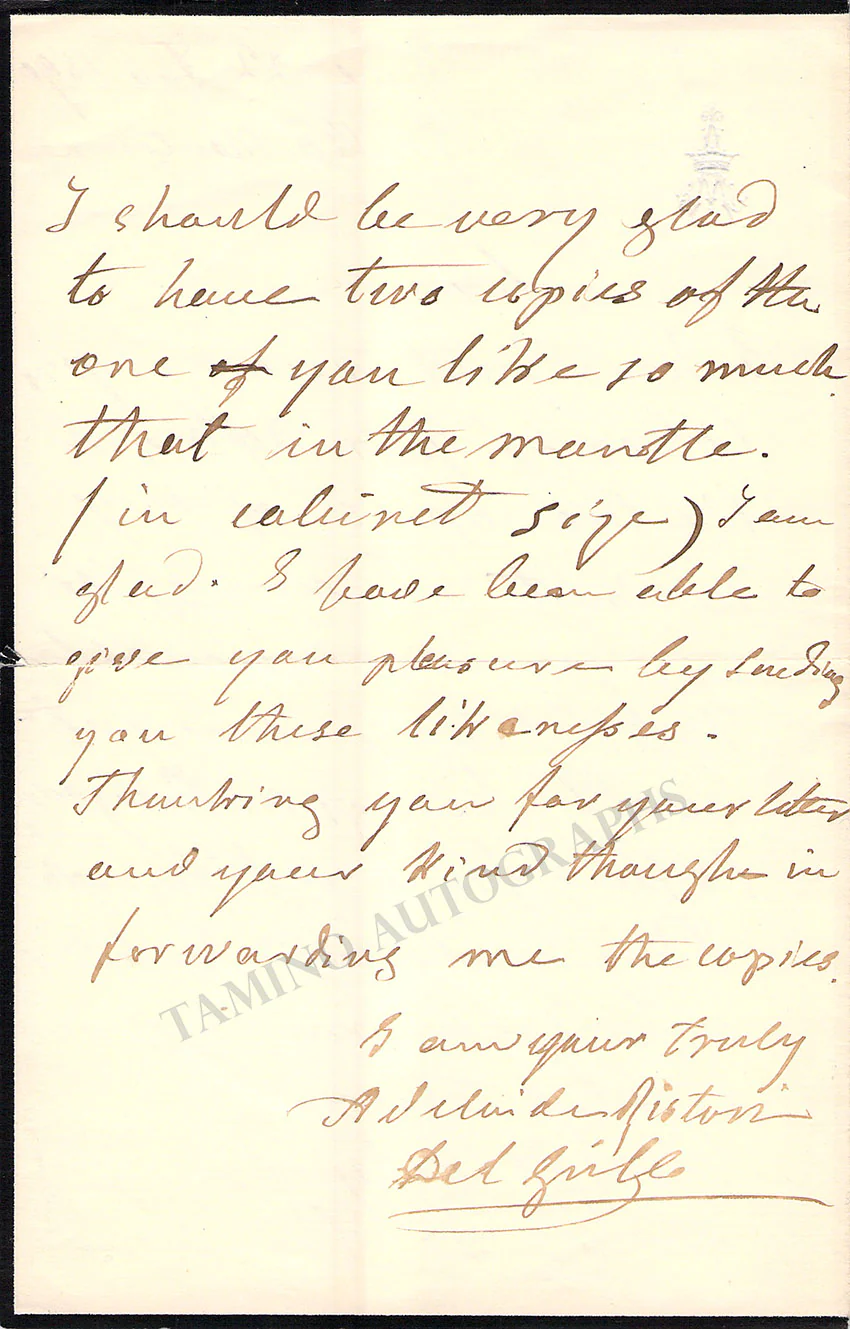 I should be very glad
to have two copies of the
one of you like so much
that in the mantle.
(in cabinet size) I am
glad. I have been able to
give you pleasure by sending
you these likenesses.
Thanking you for your letter
and your kind though in
forwarding me the copies.
I am your truly
Adelaide Ristori
Del Grillo
TAMINO AUTOGRAPHS